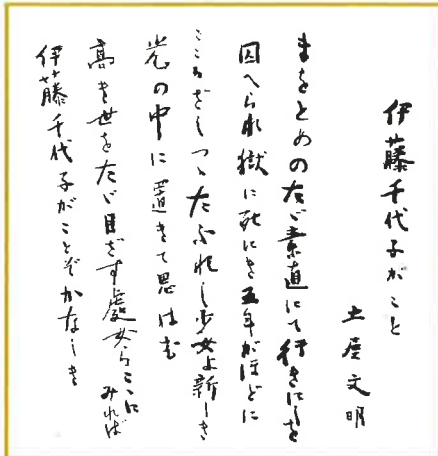 伊藤千代子がこと
土屋文明
まをとめのただ素直にて行きにしを
囚へられ獄に死にき五年がほどに
こころざしつゝたふれし少女よ新しき
光の中に置きて思はむ
高き世をただ目ざす處女らここに
みれば
伊藤千代子がことぞかなしき